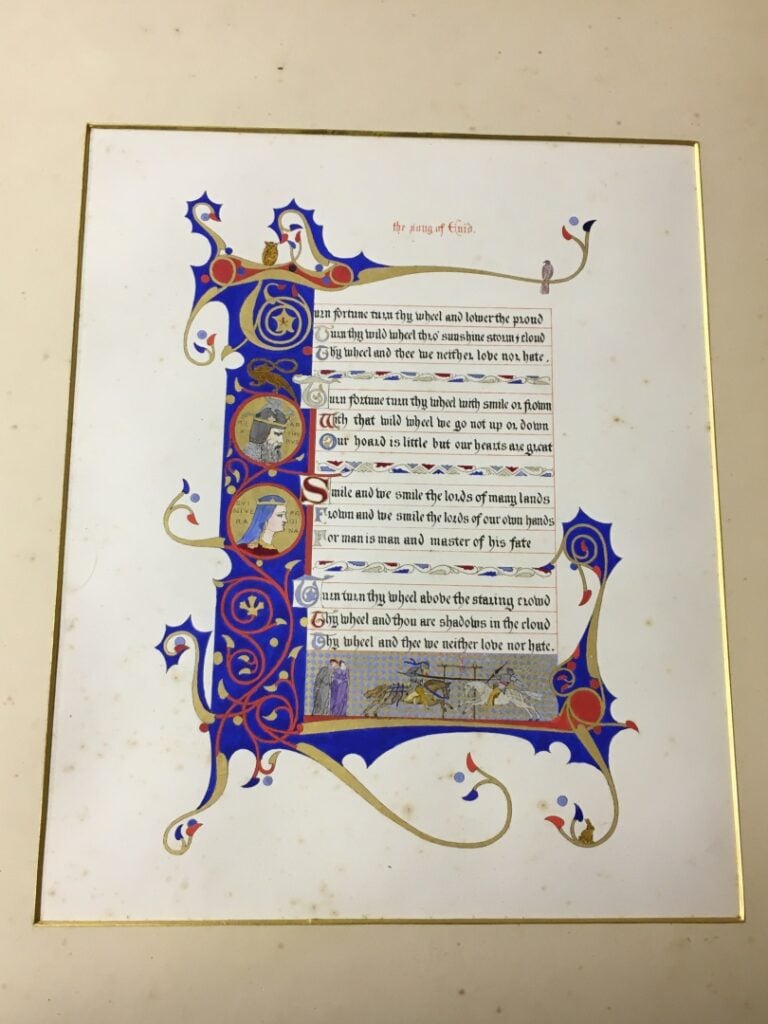 the song of Enid.
Turn fortune turn thy wheel and lower the proud
Turn thy wild wheel thro' sunshine storm & cloud
Thy wheel and thee we neither love nor hate.
Turn fortune turn thy wheel with smile or frown
With that wild wheel we go not up or down
Our hoard is little but our hearts are great
Smile and we smile the lords of many lands
Frown and we smile the lords of our own hands
For man is man and master of his fate
Turn turn thy wheel above the staring crowd
Thy wheel and thou are shadows in the cloud
Thy wheel and thee we neither love nor hate.